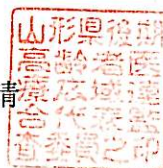 青
山形県後期
高齢者医
療広域連
合代表監
査委員之印